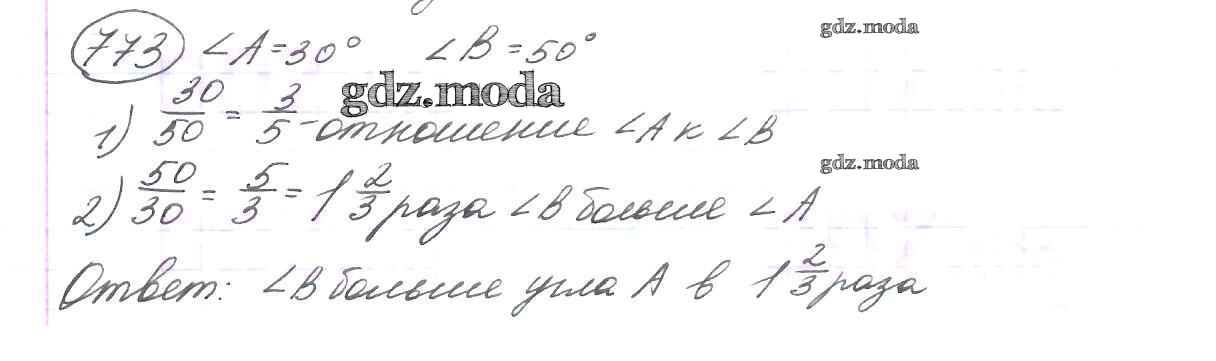 773 ∠A=30° ∠B=50° gdz.moda
1) 30/50 = 3/5 - отношение ∠A к ∠B gdz.moda
2) 50/30 = 5/3 = 1 2/3 раза ∠B больше ∠A gdz.moda
Ответ: ∠B больше угла A в 1 2/3 раза